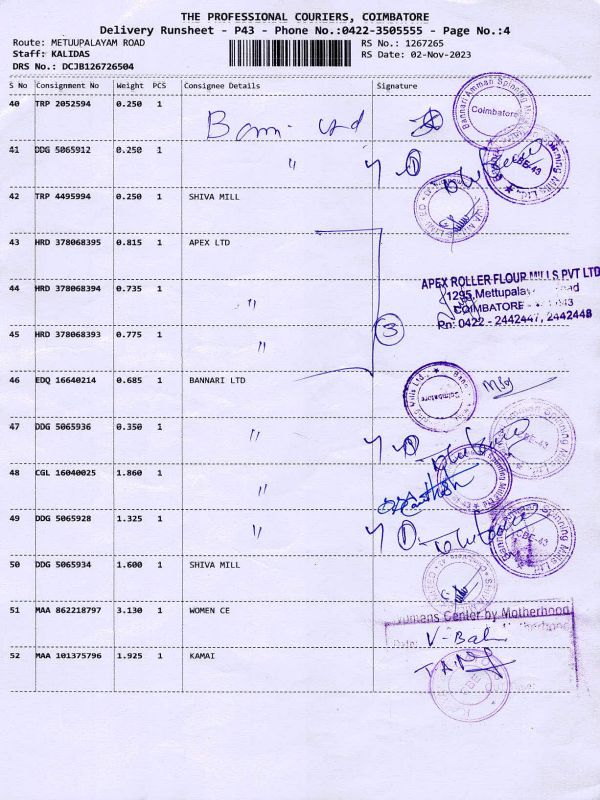 THE PROFESSIONAL COURIERS, COIMBATORE
Delivery Runsheet - P43 - Phone No.:0422-3505555 - Page No.:4
Route: METUUPALAYAM ROAD
Staff: KALIDAS
DRS No.: DCJB126726504
RS No.: 1267265
RS Date: 02-Nov-2023
S No Consignment No Weight PCS Consignee Details Signature
40 TRP 2052594 0.250 1
Bannari Amman Spinning
Coimbatore
41 DDG 5065912 0.250 1 "
CBE-43
42 TRP 4495994 0.250 1 SHIVA MILL
43 HRD 378068395 0.815 1 APEX LTD
44 HRD 378068394 0.735 1 "
APEX ROLLER FLOUR MILLS PVT LTD
1295, Mettupalay
COIMBATORE
Pn: 0422 - 2442447, 2442448
3
45 HRD 378068393 0.775 1 "
46 EDQ 16640214 0.685 1 BANNARI LTD
Coimbatore
47 DDG 5065936 0.350 1 "
CBE-43
48 CGL 16040025 1.860 1 "
49 DDG 5065928 1.325 1 "
CBE-43
50 DDG 5065934 1.600 1 SHIVA MILL
51 MAA 862218797 3.130 1 WOMEN CE
Womans Center by Motherhood
V-Bal
52 MAA 101375796 1.925 1 KAMAI